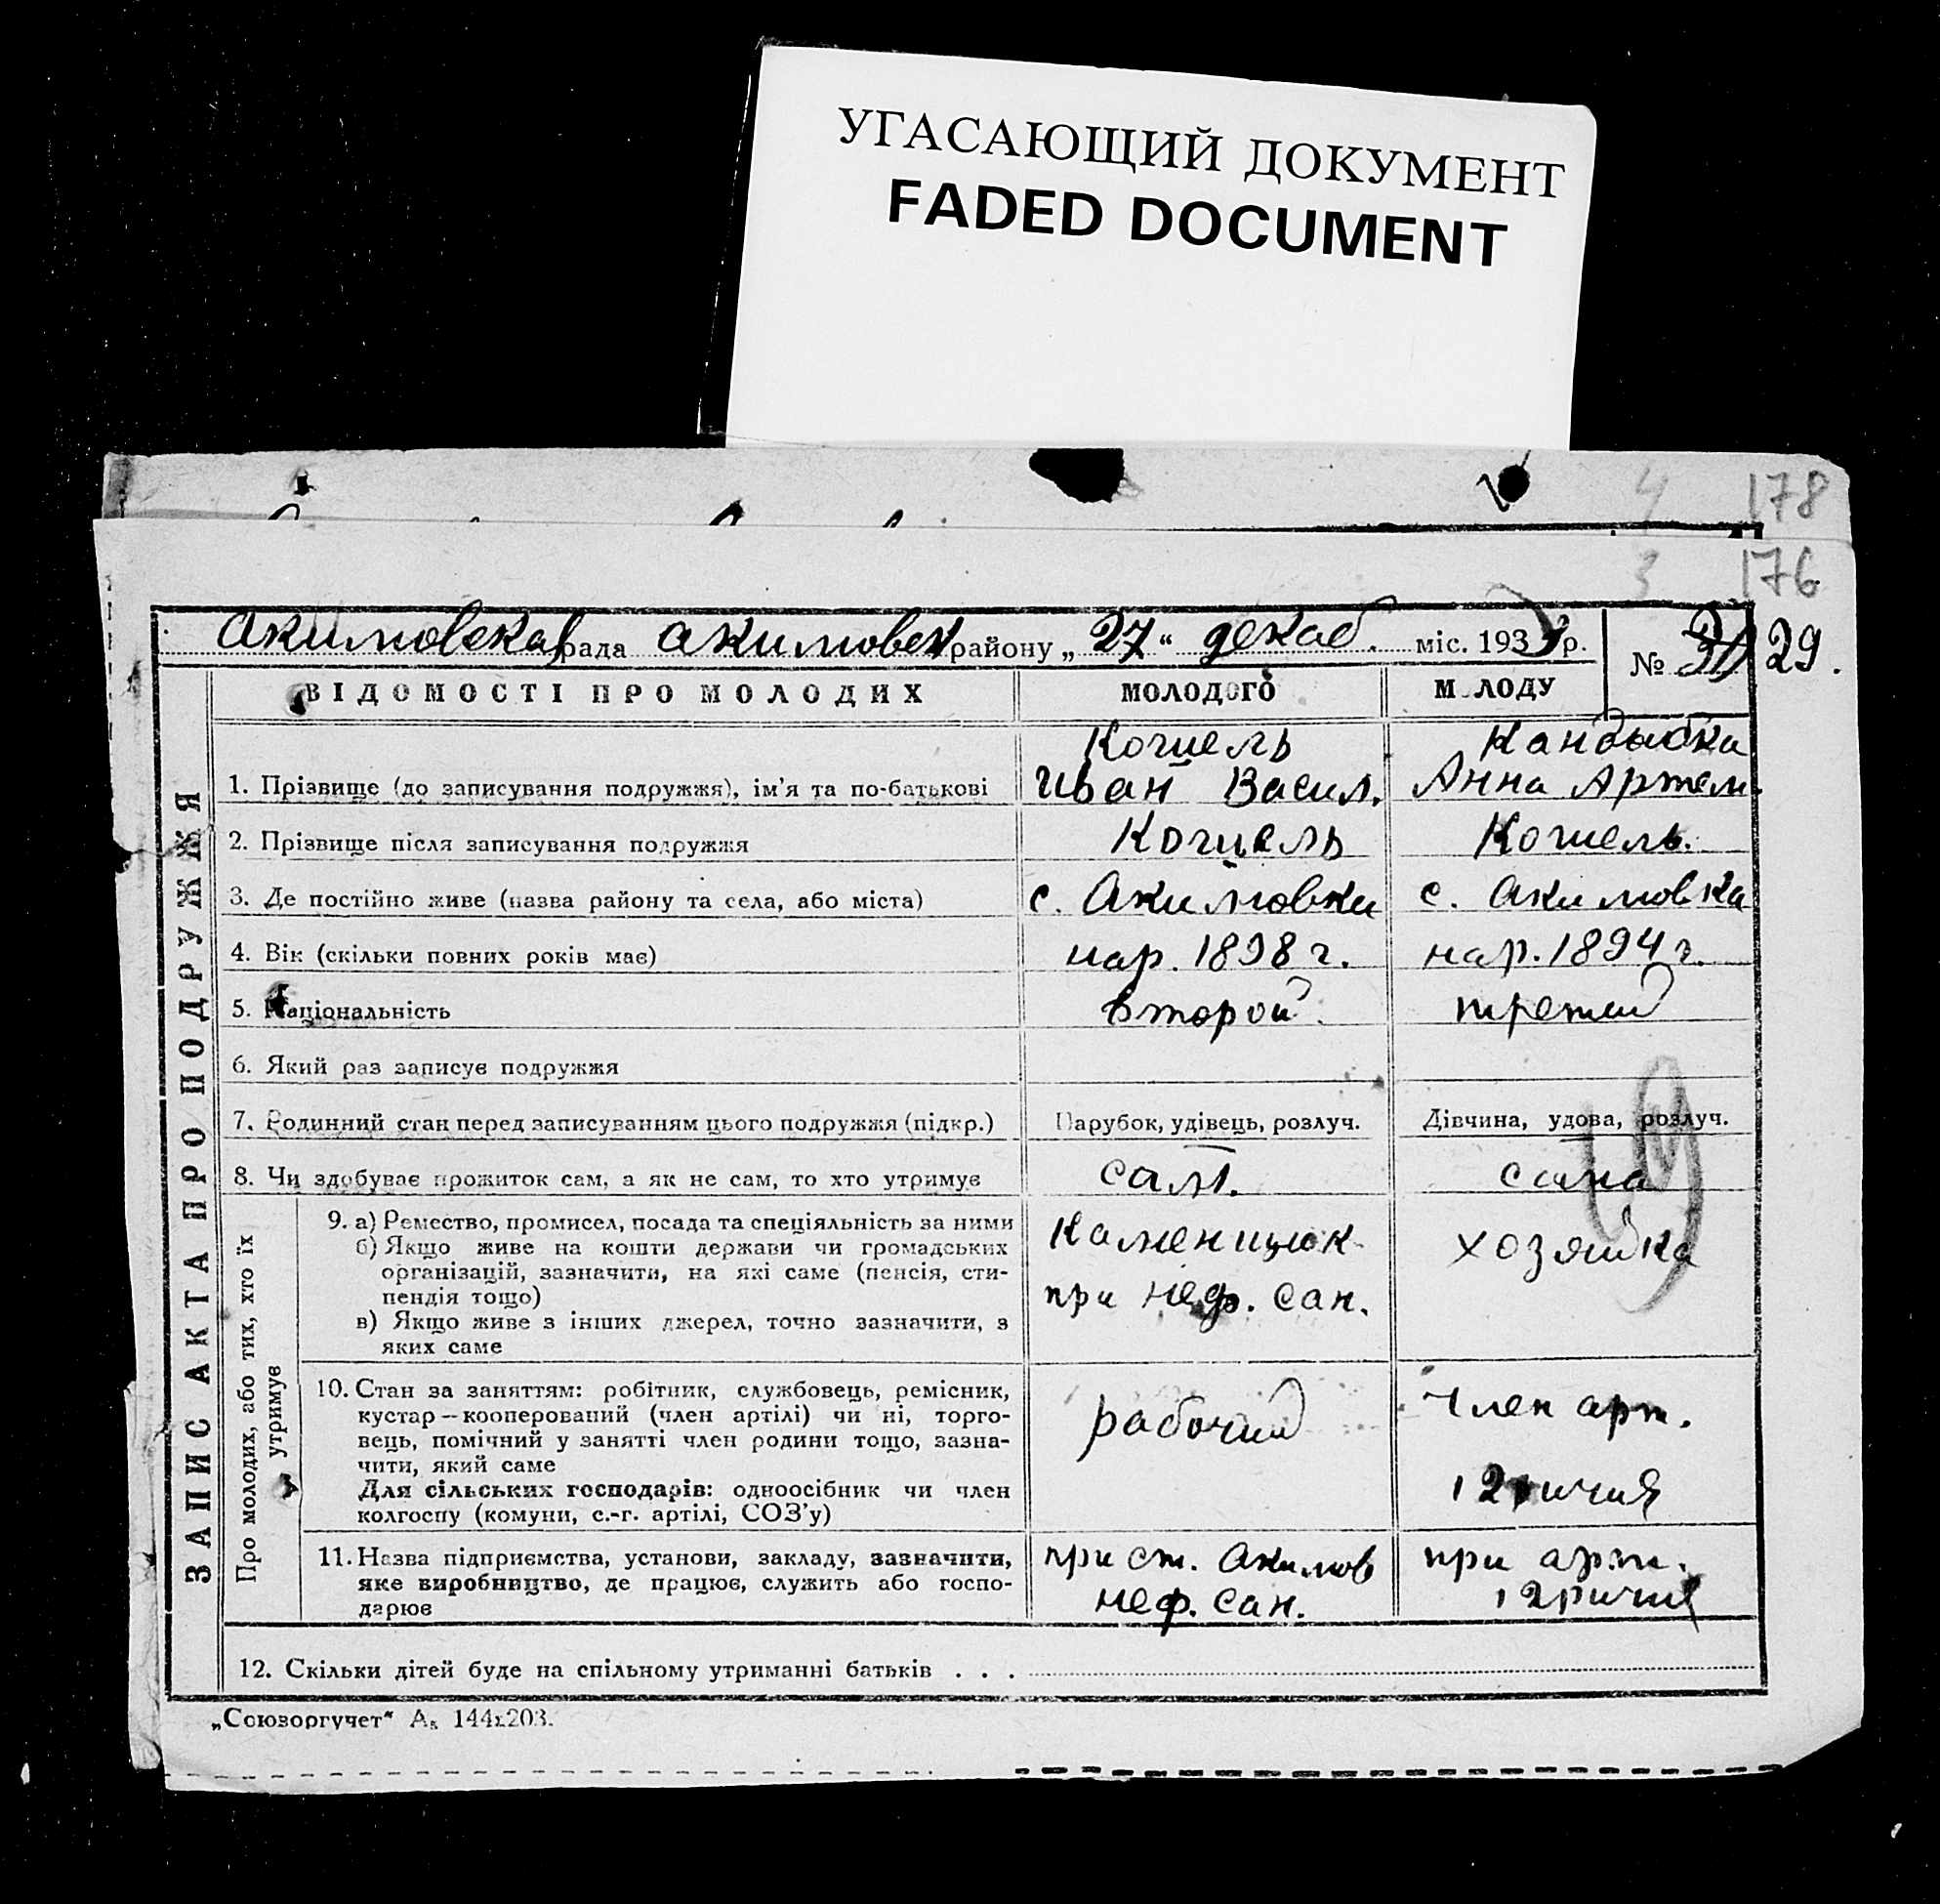 УГАСАЮЩИЙ ДОКУМЕНТ
FADED DOCUMENT
4 178
3 176
Акимовская рада Акимовск району „27“ декаб. міс. 193 р. № 29.
ВІДОМОСТІ ПРО МОЛОДИХ МОЛОДОГО М ЛОДУ
Кошель Кандыбка
1. Прізвище (до записування подружжя), ім'я та по-батькові Иван Васил. Анна Артем.
2. Прізвище після записування подружжя Кошель Кошель.
3. Де постійно живе (назва району та села, або міста) с. Акимовка с. Акимовка
4. Вік (скільки повних років має) нар. 1898 г. нар. 1894 г.
5. Національність второй третий
6. Який раз записує подружжя
7. Родинний стан перед записуванням цього подружжя (підкр.) Парубок, удівець, розлуч. Дівчина, удова, розлуч.
8. Чи здобуває прожиток сам, а як не сам, то хто утримує сам. сама
ЗАПИС АКТА ПРО ПОДРУЖЖЯ
Про молодих, або тих, хто їх
утримує
9. а) Ремество, промисел, посада та спеціяльність за ними Каменщик хозяйка
б) Якщо живе на кошти держави чи громадських
організацій, зазначити, на які саме (пенсія, сти- при неф. сан.
пендія тощо)
в) Якщо живе з інших джерел, точно зазначити, з
яких саме
10. Стан за заняттям: робітник, службовець, ремісник, рабочий член арт.
кустар—кооперований (член артілі) чи ні, торго-
вець, помічний у занятті член родини тощо, зазна-
чити, який саме
Для сільських господарів: одноосібник чи член
колгоспу (комуни, с.-г. артілі, СОЗ'у)
11. Назва підприємства, установи, закладу, зазначити, при ст. Акимов при арт.
яке виробництво, де працює, служить або госпо- неф. сан.
дарює
12. Скільки дітей буде на спільному утриманні батьків . . .
„Союзоргучет“